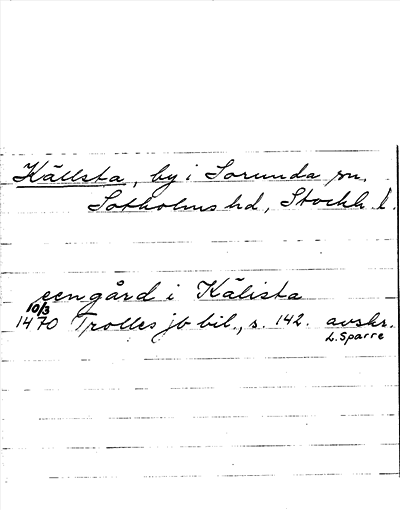 Källsta, by i Sorunda sn.
Sotholms hd, Stockh. l.
een gård i Kälista
10/3
1470 Trolles jb bil., s. 142. avskr.
L. Sparre